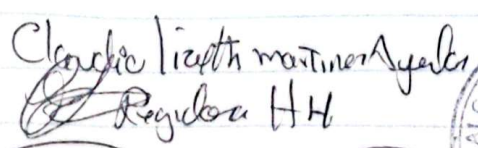 Claudia lizeth martinez Ayala
Regidora HH